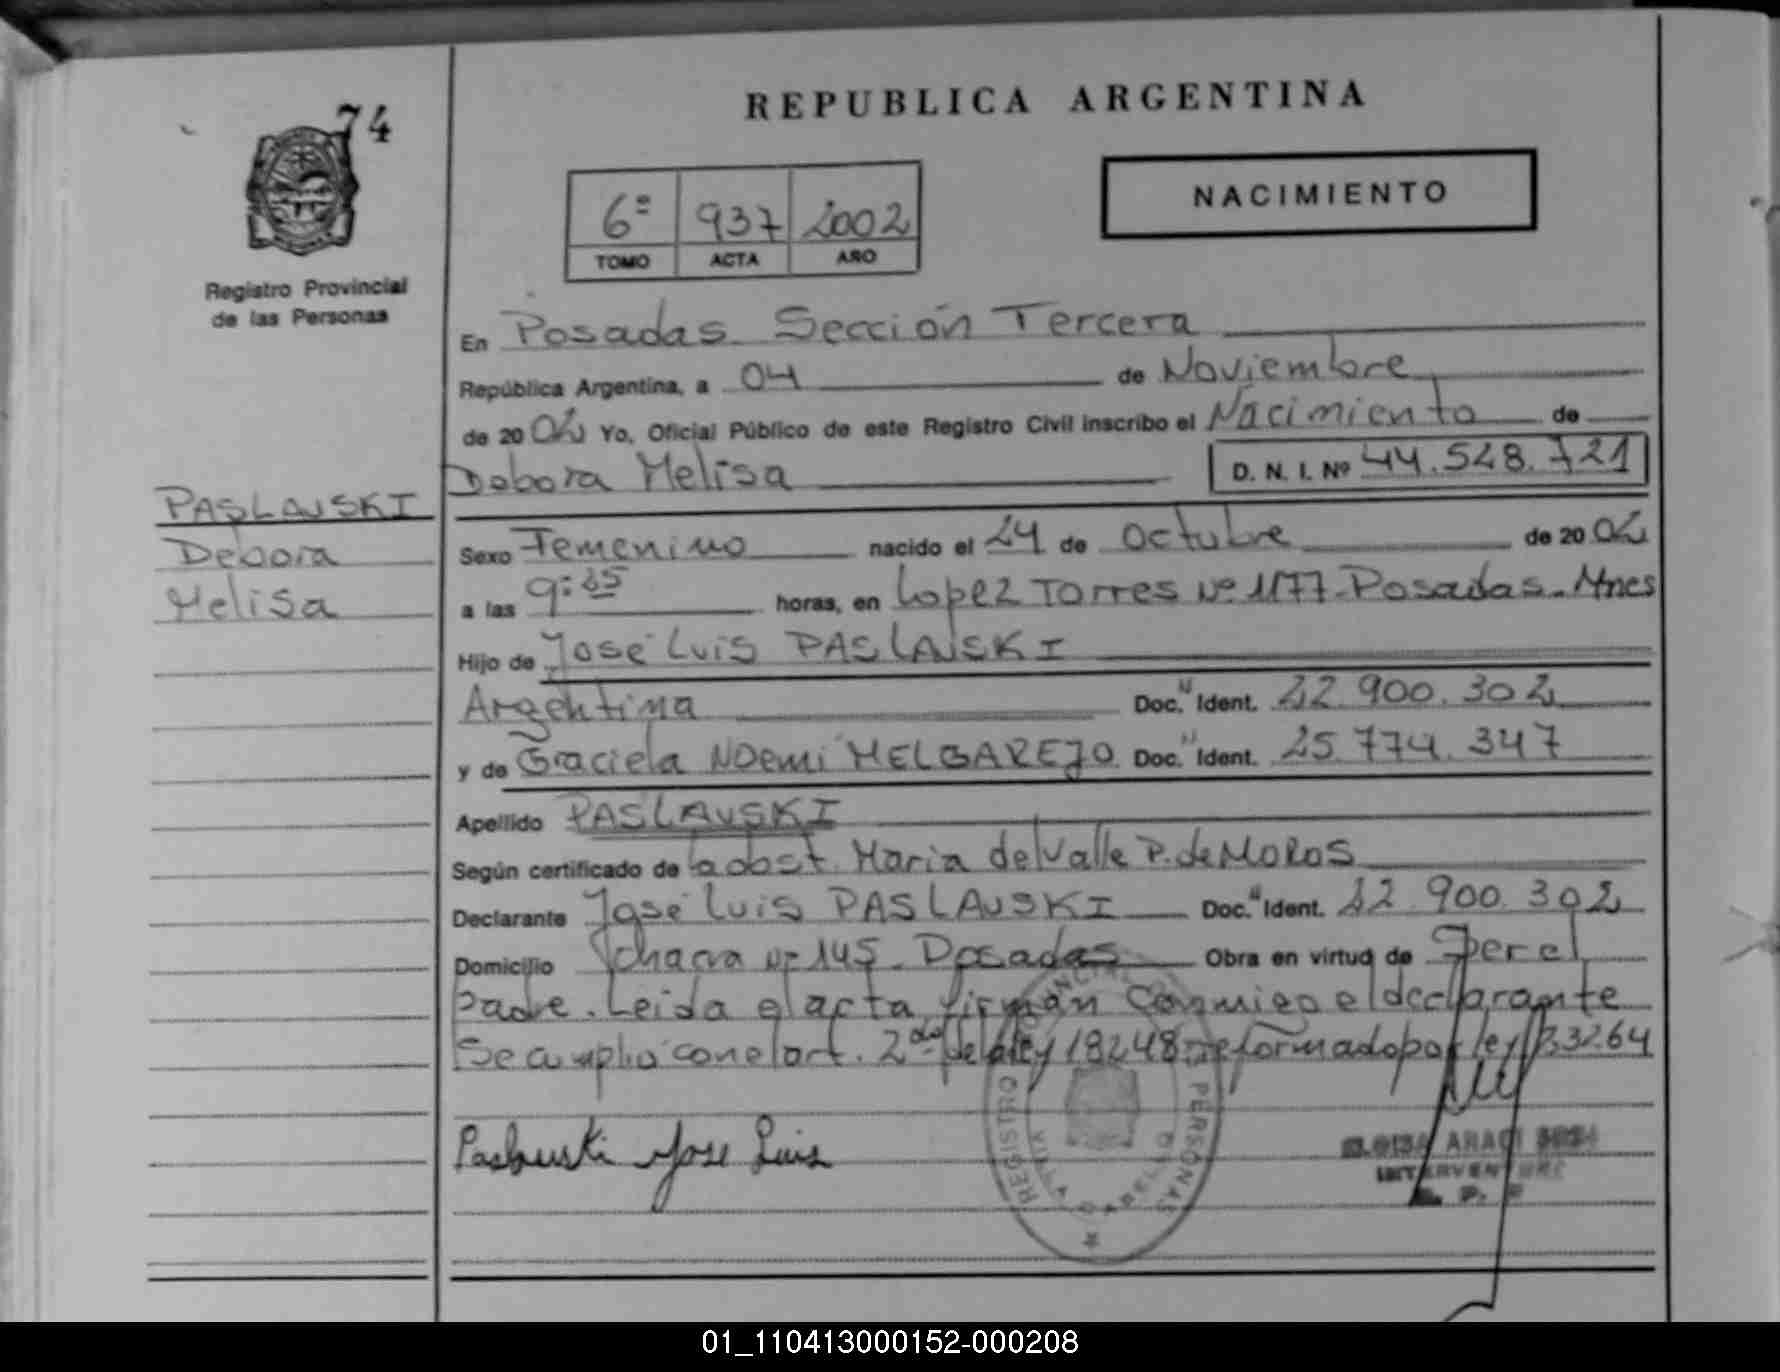 74
REPUBLICA ARGENTINA
NACIMIENTO
6º 937 2002
TOMO ACTA AÑO
Registro Provincial
de las Personas
En Posadas Sección Tercera
República Argentina, a 04 de Noviembre
de 2002 Yo, Oficial Público de este Registro Civil inscribo el Nacimiento de
Debora Melisa D. N. I. Nº 44.528.721
PASLAUSKI
Debora
Melisa
Sexo Femenino nacido el 24 de Octubre de 2002
a las 9: horas, en Lopez Torres Nº 1177-Posadas-Mnes
Hijo de José Luis PASLAUSKI
Argentina Doc. N Ident. 22.900.302
y de Graciela Noemi MELGAREJO Doc. N Ident. 25.774.347
Apellido PASLAUSKI
Según certificado de la obst. Maria del Valle P. de MOROS
Declarante José Luis PASLAUSKI Doc. N Ident. 22.900.302
Domicilio chacra Nº 145 - Posadas Obra en virtud de ser el
padre. Leida el acta, firman conmigo el declarante
Se cumplio con el art. 2do de la ley 18248 reformado por ley 23264
Paslauski Jose Luis
REGISTRO PROVINCIAL PERSONAS
VILLA CABELLO
ARACI SOSA
01_110413000152-000208